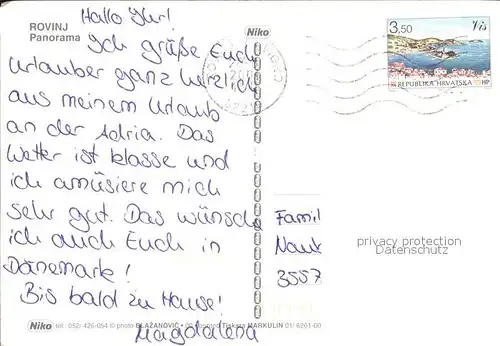 ROVINJ
Panorama
Niko
Hallo Ihr!
Ich grüße Euch
Urlauber ganz herzlich
aus meinem Urlaub
an der Adria. Das
Wetter ist klasse und
ich amüsiere mich
sehr gut. Das wünsche
ich auch Euch in
Dänemark!
Bis bald zu Hause!
Magdalena
3,50
Vis
REPUBLIKA HRVATSKA HP
Famil
3557
privacy protection
Datenschutz
Niko
Niko tel: 052/ 426-054 © photo BLAŽANOVIĆ Tiskara MARKULIN 01/ 6261-00